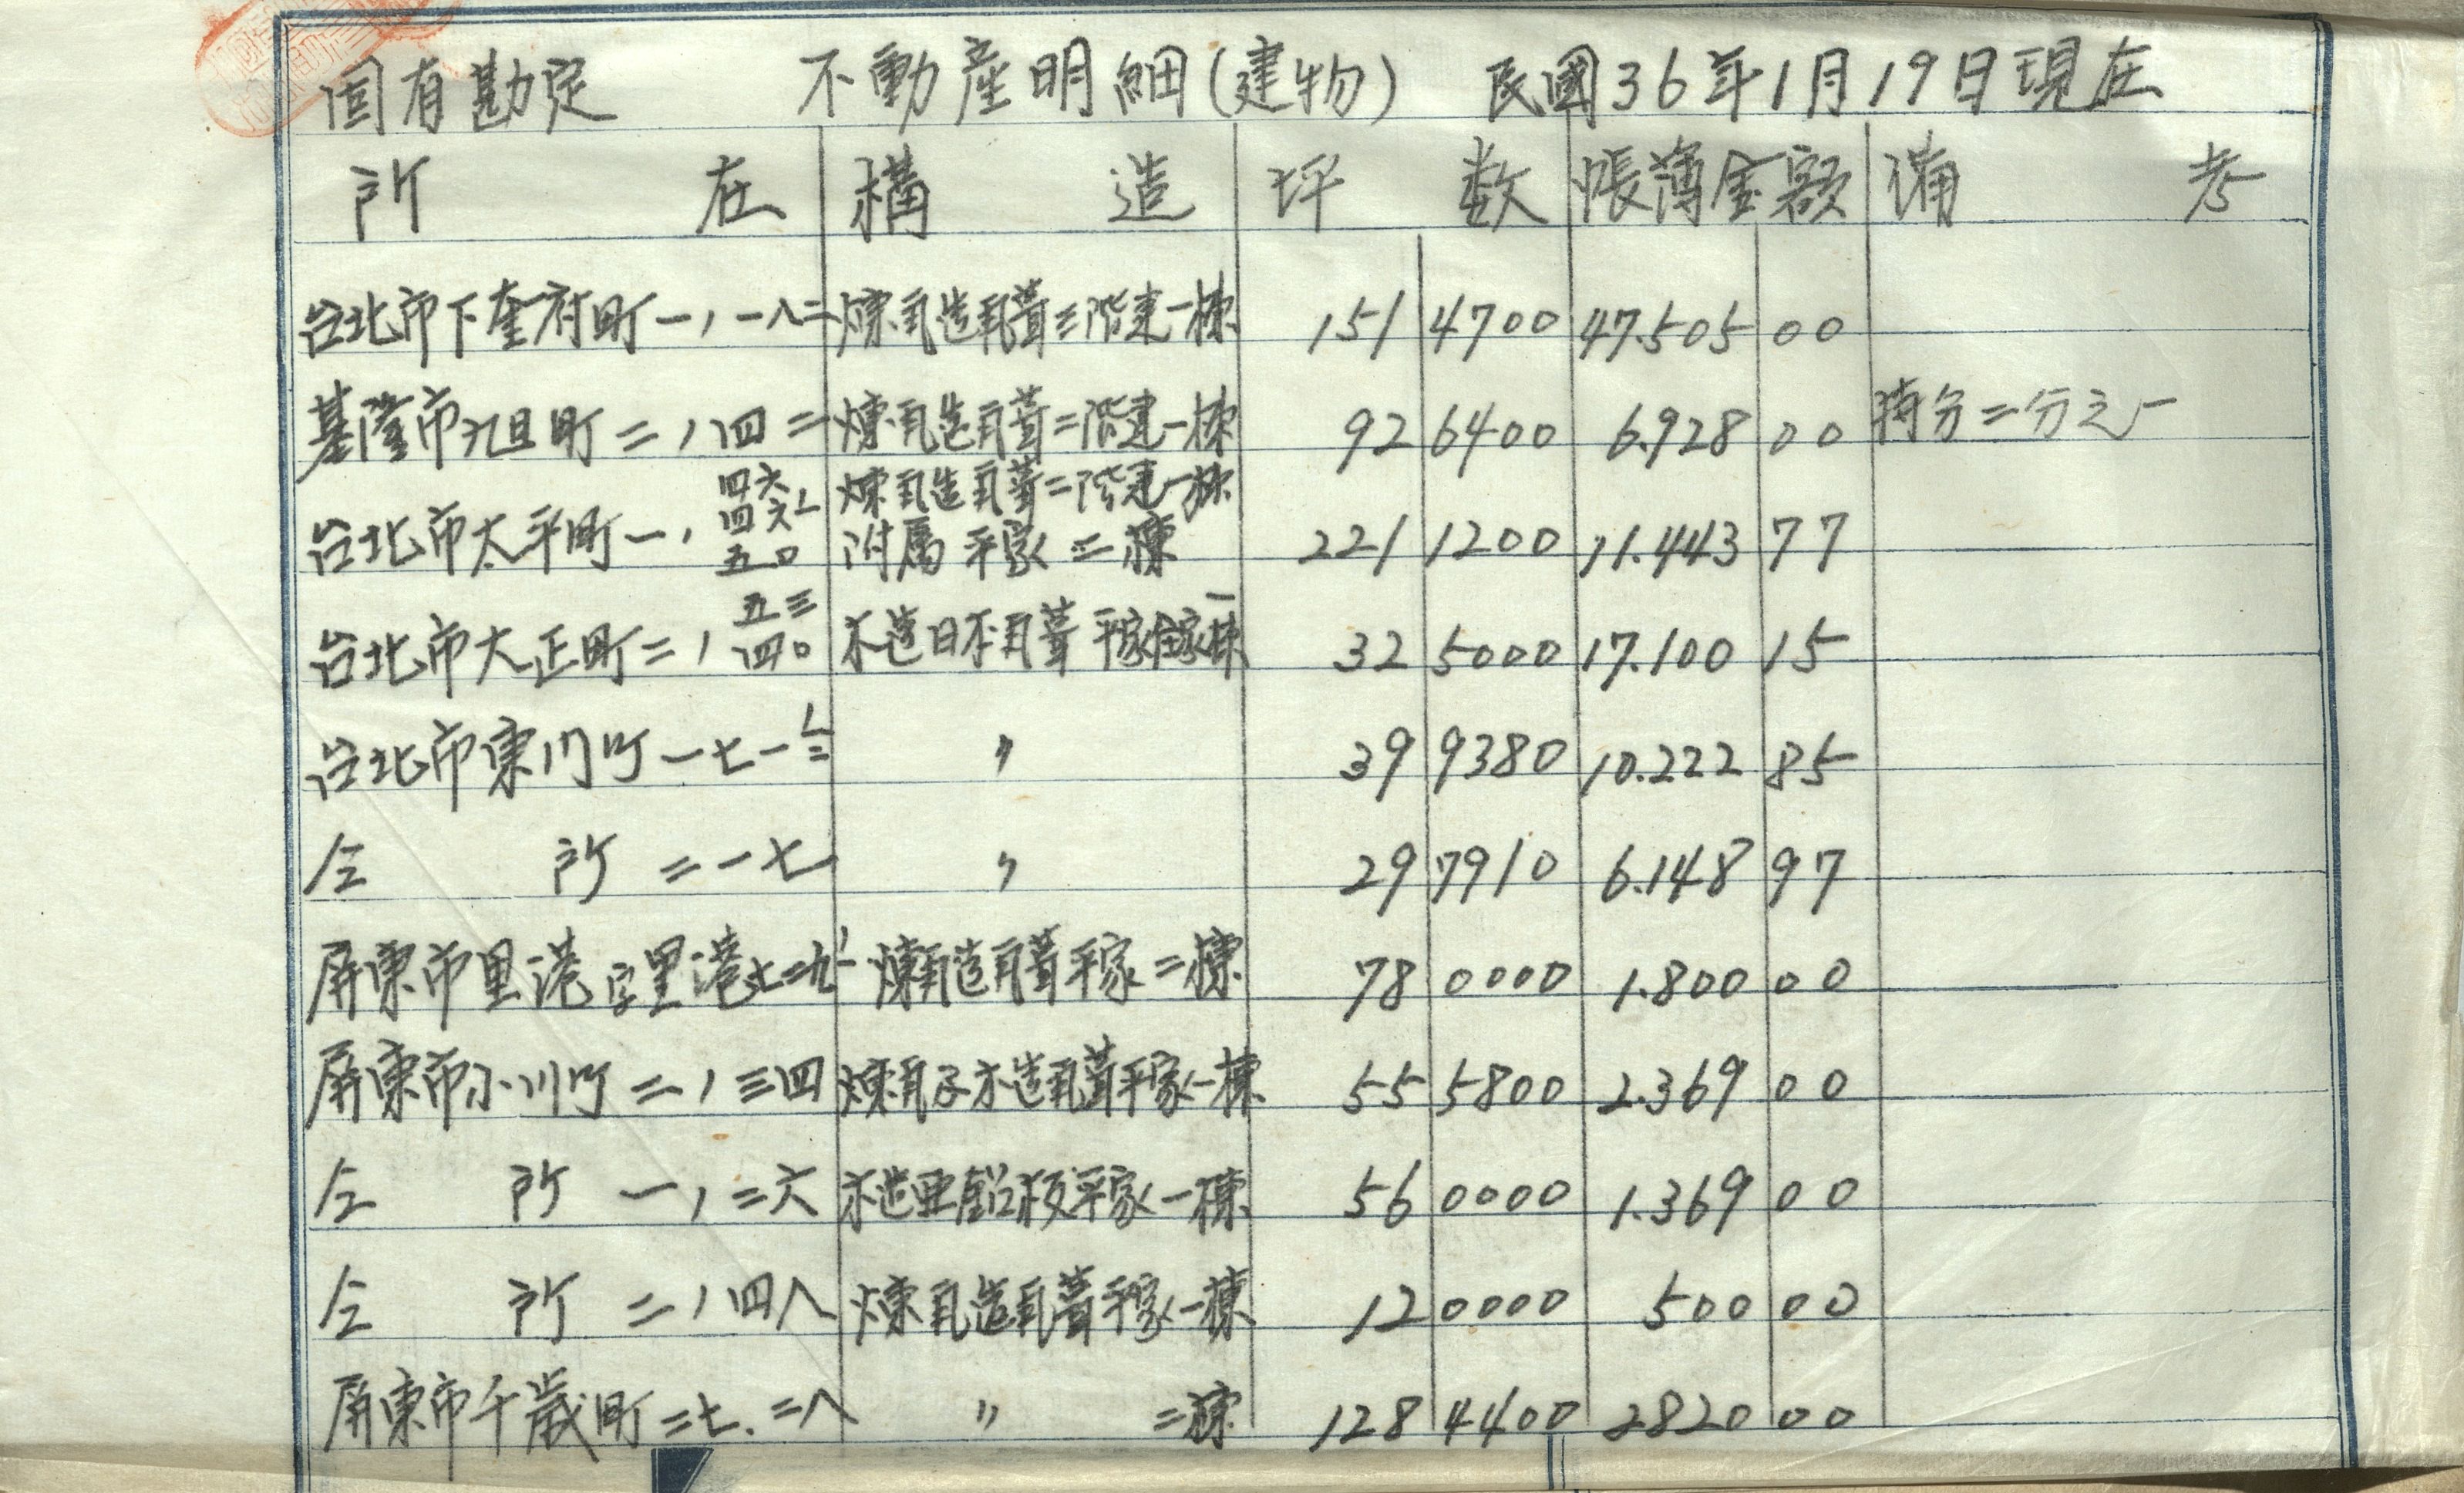 固有勘定 不動産明細(建物) 民國36年1月19日現在
所在 構造 坪数 帳簿金額 備考
台北市下奎府町一,一八二 煉瓦造瓦葺三階建一棟 151 4700 47.505 00
基隆市旭町二,四二 煉瓦造瓦葺二階建一棟 92 6400 6.928 00 持分二分之一
台北市太平町一, 四六 四六ノ一 五〇 煉瓦造瓦葺二階建一棟 附属平家二棟 221 1200 11.443 77
台北市大正町二, 五三 四〇 木造日本瓦葺平家住家一棟 32 5000 17.100 15
台北市東門町一七一 〃 39 9380 10.222 85
仝所二一七 〃 29 7910 6.148 97
屏東市里港字里港七二九ノ一 煉瓦造瓦葺平家二棟 78 0000 1.800 00
屏東市小川町二,三四 煉瓦及木造瓦葺平家一棟 55 5800 2.369 00
仝所一,二六 木造亜鉛板平家一棟 56 0000 1.369 00
仝所二,四八 煉瓦造瓦葺平家一棟 12 0000 500 00
屏東市千歳町二七.二八 〃 二棟 128 4400 2820 00